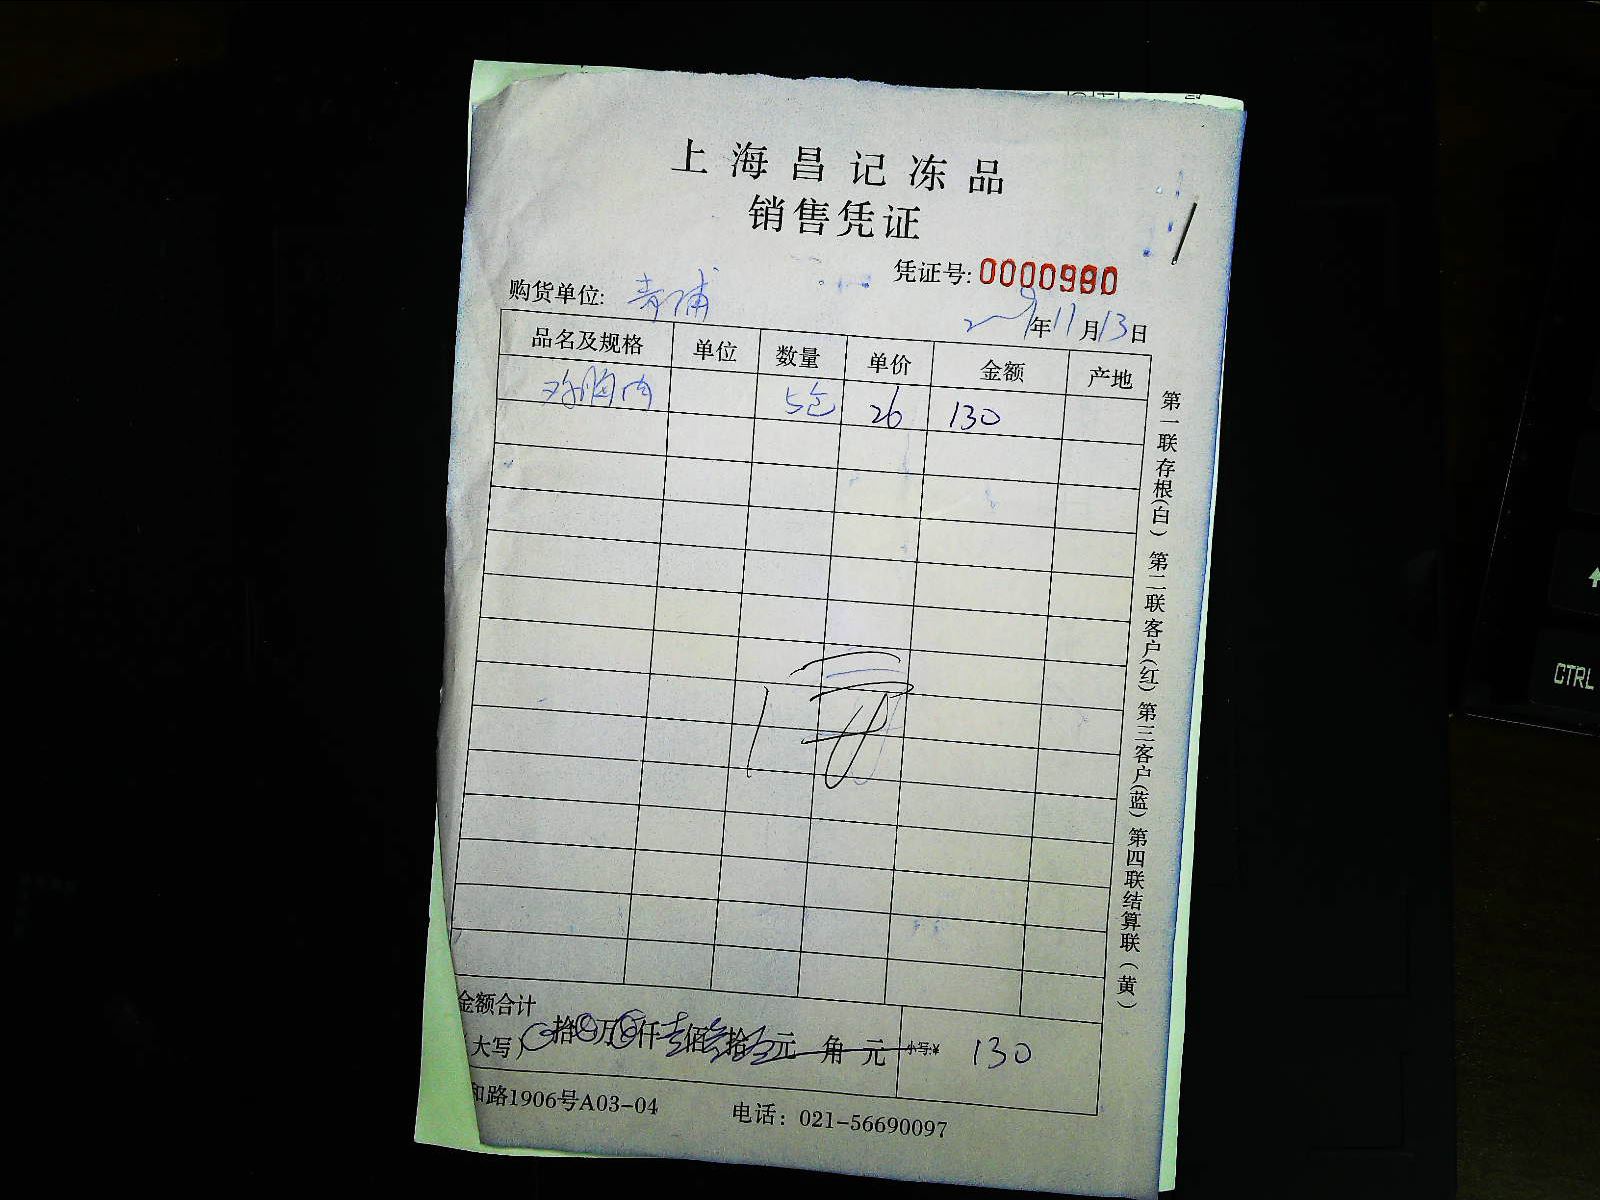 上海昌记冻品
销售凭证
凭证号:0000980
购货单位: 青浦
年11月13日
品名及规格 单位 数量 单价 金额 产地
鸡胸肉 5包 26 130
第一联存根(白) 第二联客户(红) 第三客户(蓝) 第四联结算联(黄)
金额合计
大写) 拾 万 仟壹佰叁拾 元 角 元 小写:¥ 130
和路1906号A03-04 电话: 021-56690097
CTRL